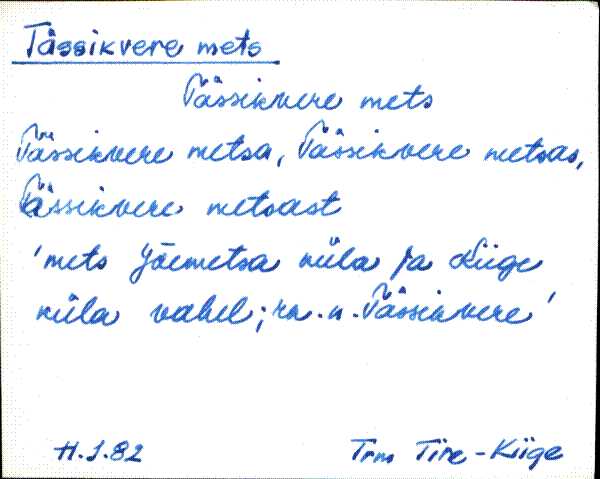 Tässikvere mets
Tässikvere mets
Tässikvere metsa, Tässikvere metsas,
Tässikvere metsast
'mets Jõemetsa küla ja Kiige
küla vahel; rk. n. Tässikvere'
H.J.82 Trm Tire-Kiige